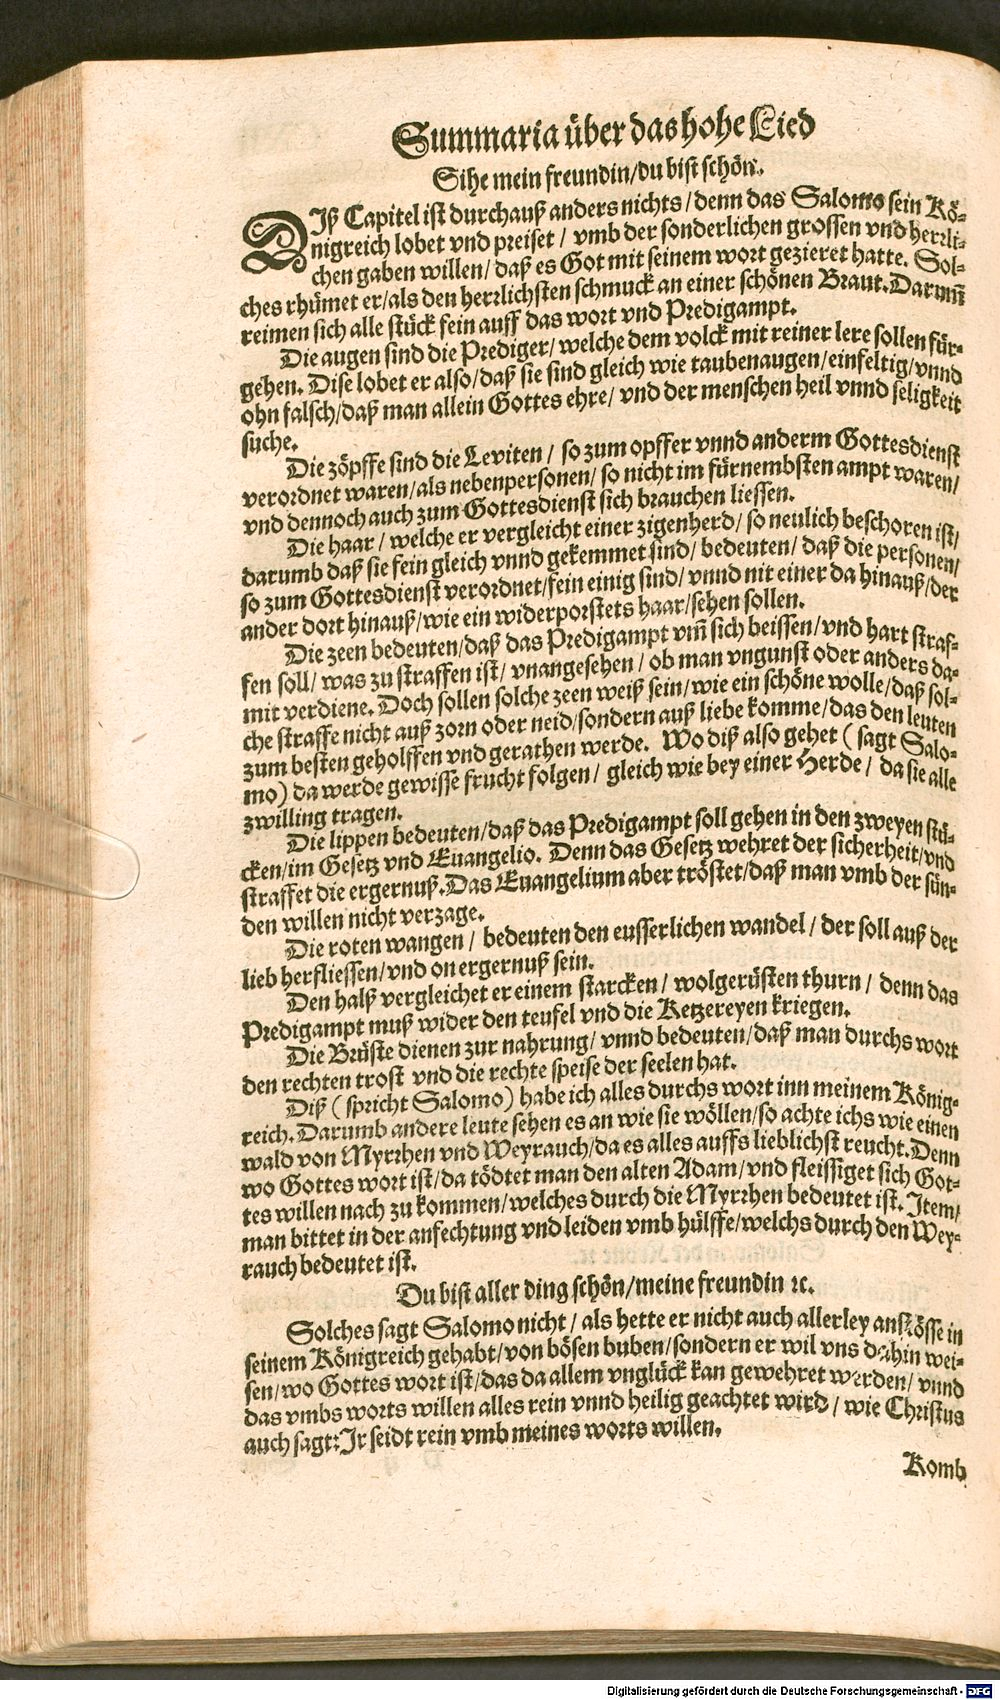 Summaria über das hohe Lied
Sihe mein freundin/du bist schön.
DIß Capitel ist durchauß anders nichts/denn das Salomo sein Kö-
nigreich lobet vnd preiset/ vmb der sonderlichen grossen vnd herrli-
chen gaben willen/ daß es Got mit seinem wort gezieret hatte. Sol-
ches rhümet er/als den herrlichsten schmuck an einer schönen Braut. Darumm̃
reimen sich alle stück fein auff das wort vnd Predigampt.
Die augen sind die Prediger/ welche dem volck mit reiner lere sollen für-
gehen. Dise lobet er also/daß sie sind gleich wie taubenaugen/einfeltig/vnnd
ohn falsch/daß man allein Gottes ehre/ vnd der menschen heil vnnd seligkeit
suche.
Die zöpffe sind die Leviten/ so zum opffer vnnd anderm Gottesdienst
verordnet waren/als nebenpersonen/ so nicht im fürnembsten ampt waren/
vnd dennoch auch zum Gottesdienst sich brauchen liessen.
Die haar/ welche er vergleicht einer zigenherd/ so neulich beschoren ist/
darumb daß sie fein gleich vnnd gekemmet sind/ bedeuten/ daß die personen/
so zum Gottesdienst verordnet/fein einig sind/ vnnd nit einer da hinauß/der
ander dort hinauß/wie ein widerporstets haar/sehen sollen.
Die zeen bedeuten/daß das Predigampt vm̃ sich beissen/vnd hart straf-
fen soll/ was zu straffen ist/ vnangesehen/ ob man vngunst oder anders da-
mit verdiene. Doch sollen solche zeen weiß sein/wie ein schöne wolle/daß sol-
che straffe nicht auß zorn oder neid/sondern auß liebe komme/das den leuten
zum besten geholffen vnd gerathen werde. Wo diß also gehet (sagt Salo-
mo) da werde gewisse frucht folgen/ gleich wie bey einer Herde/ da sie alle
zwilling tragen.
Die lippen bedeuten/daß das Predigampt soll gehen in den zweyen stü-
cken/im Gesetz vnd Euangelio. Denn das Gesetz wehret der sicherheit/vnd
straffet die ergernuß. Das Euangelium aber tröstet/daß man vmb der sün-
den willen nicht verzage.
Die roten wangen/ bedeuten den eusserlichen wandel/ der soll auß der
lieb herfliessen/vnd on ergernuß sein.
Den halß vergleichet er einem starcken/ wolgerüsten thurn/ denn das
Predigampt muß wider den teufel vnd die Ketzereyen kriegen.
Die Brüste dienen zur nahrung/ vnnd bedeuten/daß man durchs wort
den rechten trost vnd die rechte speise der seelen hat.
Diß (spricht Salomo) habe ich alles durchs wort inn meinem König-
reich. Darumb andere leute sehen es an wie sie wöllen/so achte ichs wie einen
wald von Myrrhen vnd Weyrauch/da es alles auffs lieblichst reucht. Denn
wo Gottes wort ist/da tödtet man den alten Adam/vnd fleissiget sich Got-
tes willen nach zu kommen/welches durch die Myrrhen bedeutet ist. Item/
man bittet in der anfechtung vnd leiden vmb hülffe/welchs durch den Wey-
rauch bedeutet ist.
Du bist aller ding schön/meine freundin ꝛc.
Solches sagt Salomo nicht/ als hette er nicht auch allerley anstösse in
seinem Königreich gehabt/von bösen buben/sondern er wil vns dahin wei-
sen/wo Gottes wort ist/das da allem vnglück kan gewehret werden/ vnnd
das vmbs worts willen alles rein vnnd heilig geachtet wird/ wie Christus
auch sagt: Jr seidt rein vmb meines worts willen.
Komb
Digitalisierung gefördert durch die Deutsche Forschungsgemeinschaft - DFG